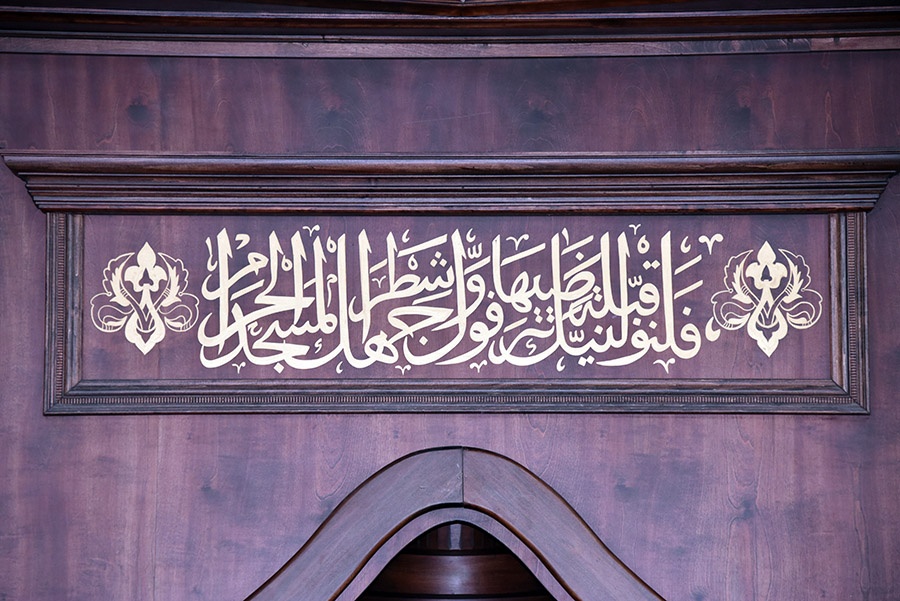 فلنولينك قبلة ترضيها فول وجهك شطر المسجد الحرام